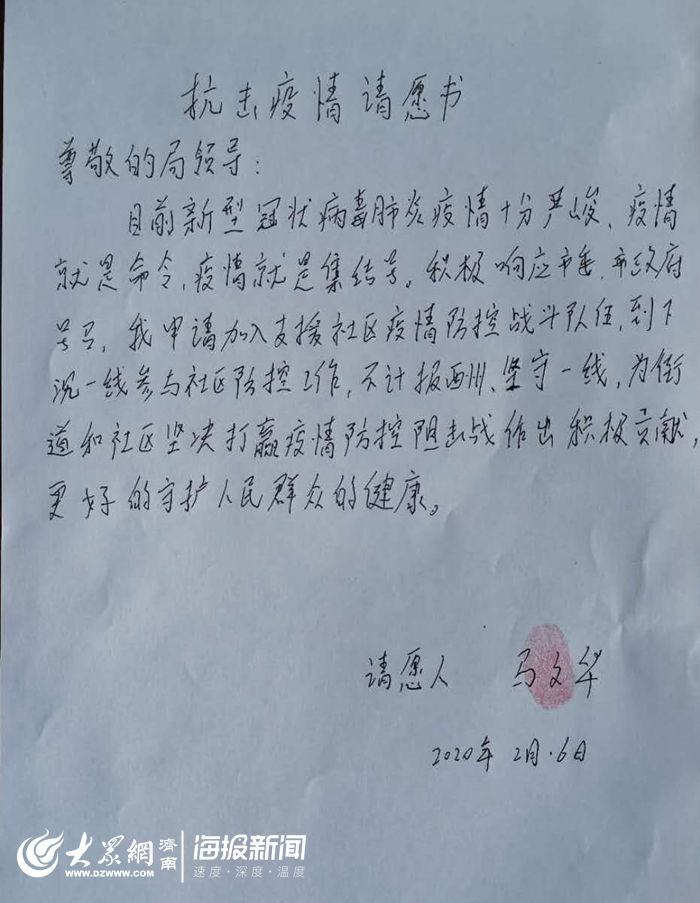 抗击疫情请愿书
尊敬的局领导：
目前新型冠状病毒肺炎疫情十分严峻、疫情
就是命令，疫情就是集结号。积极响应市委、市政府
号召，我申请加入支援社区疫情防控战斗队伍，到下
沉一线参与社区防控工作，不计报酬、坚守一线，为街
道和社区坚决打赢疫情防控阻击战作出积极贡献，
更好的守护人民群众的健康。
请愿人 马文华
2020年2月·6日
大眾網 濟南 海报新闻
WWW.DZWWW.COM 速度·深度·温度